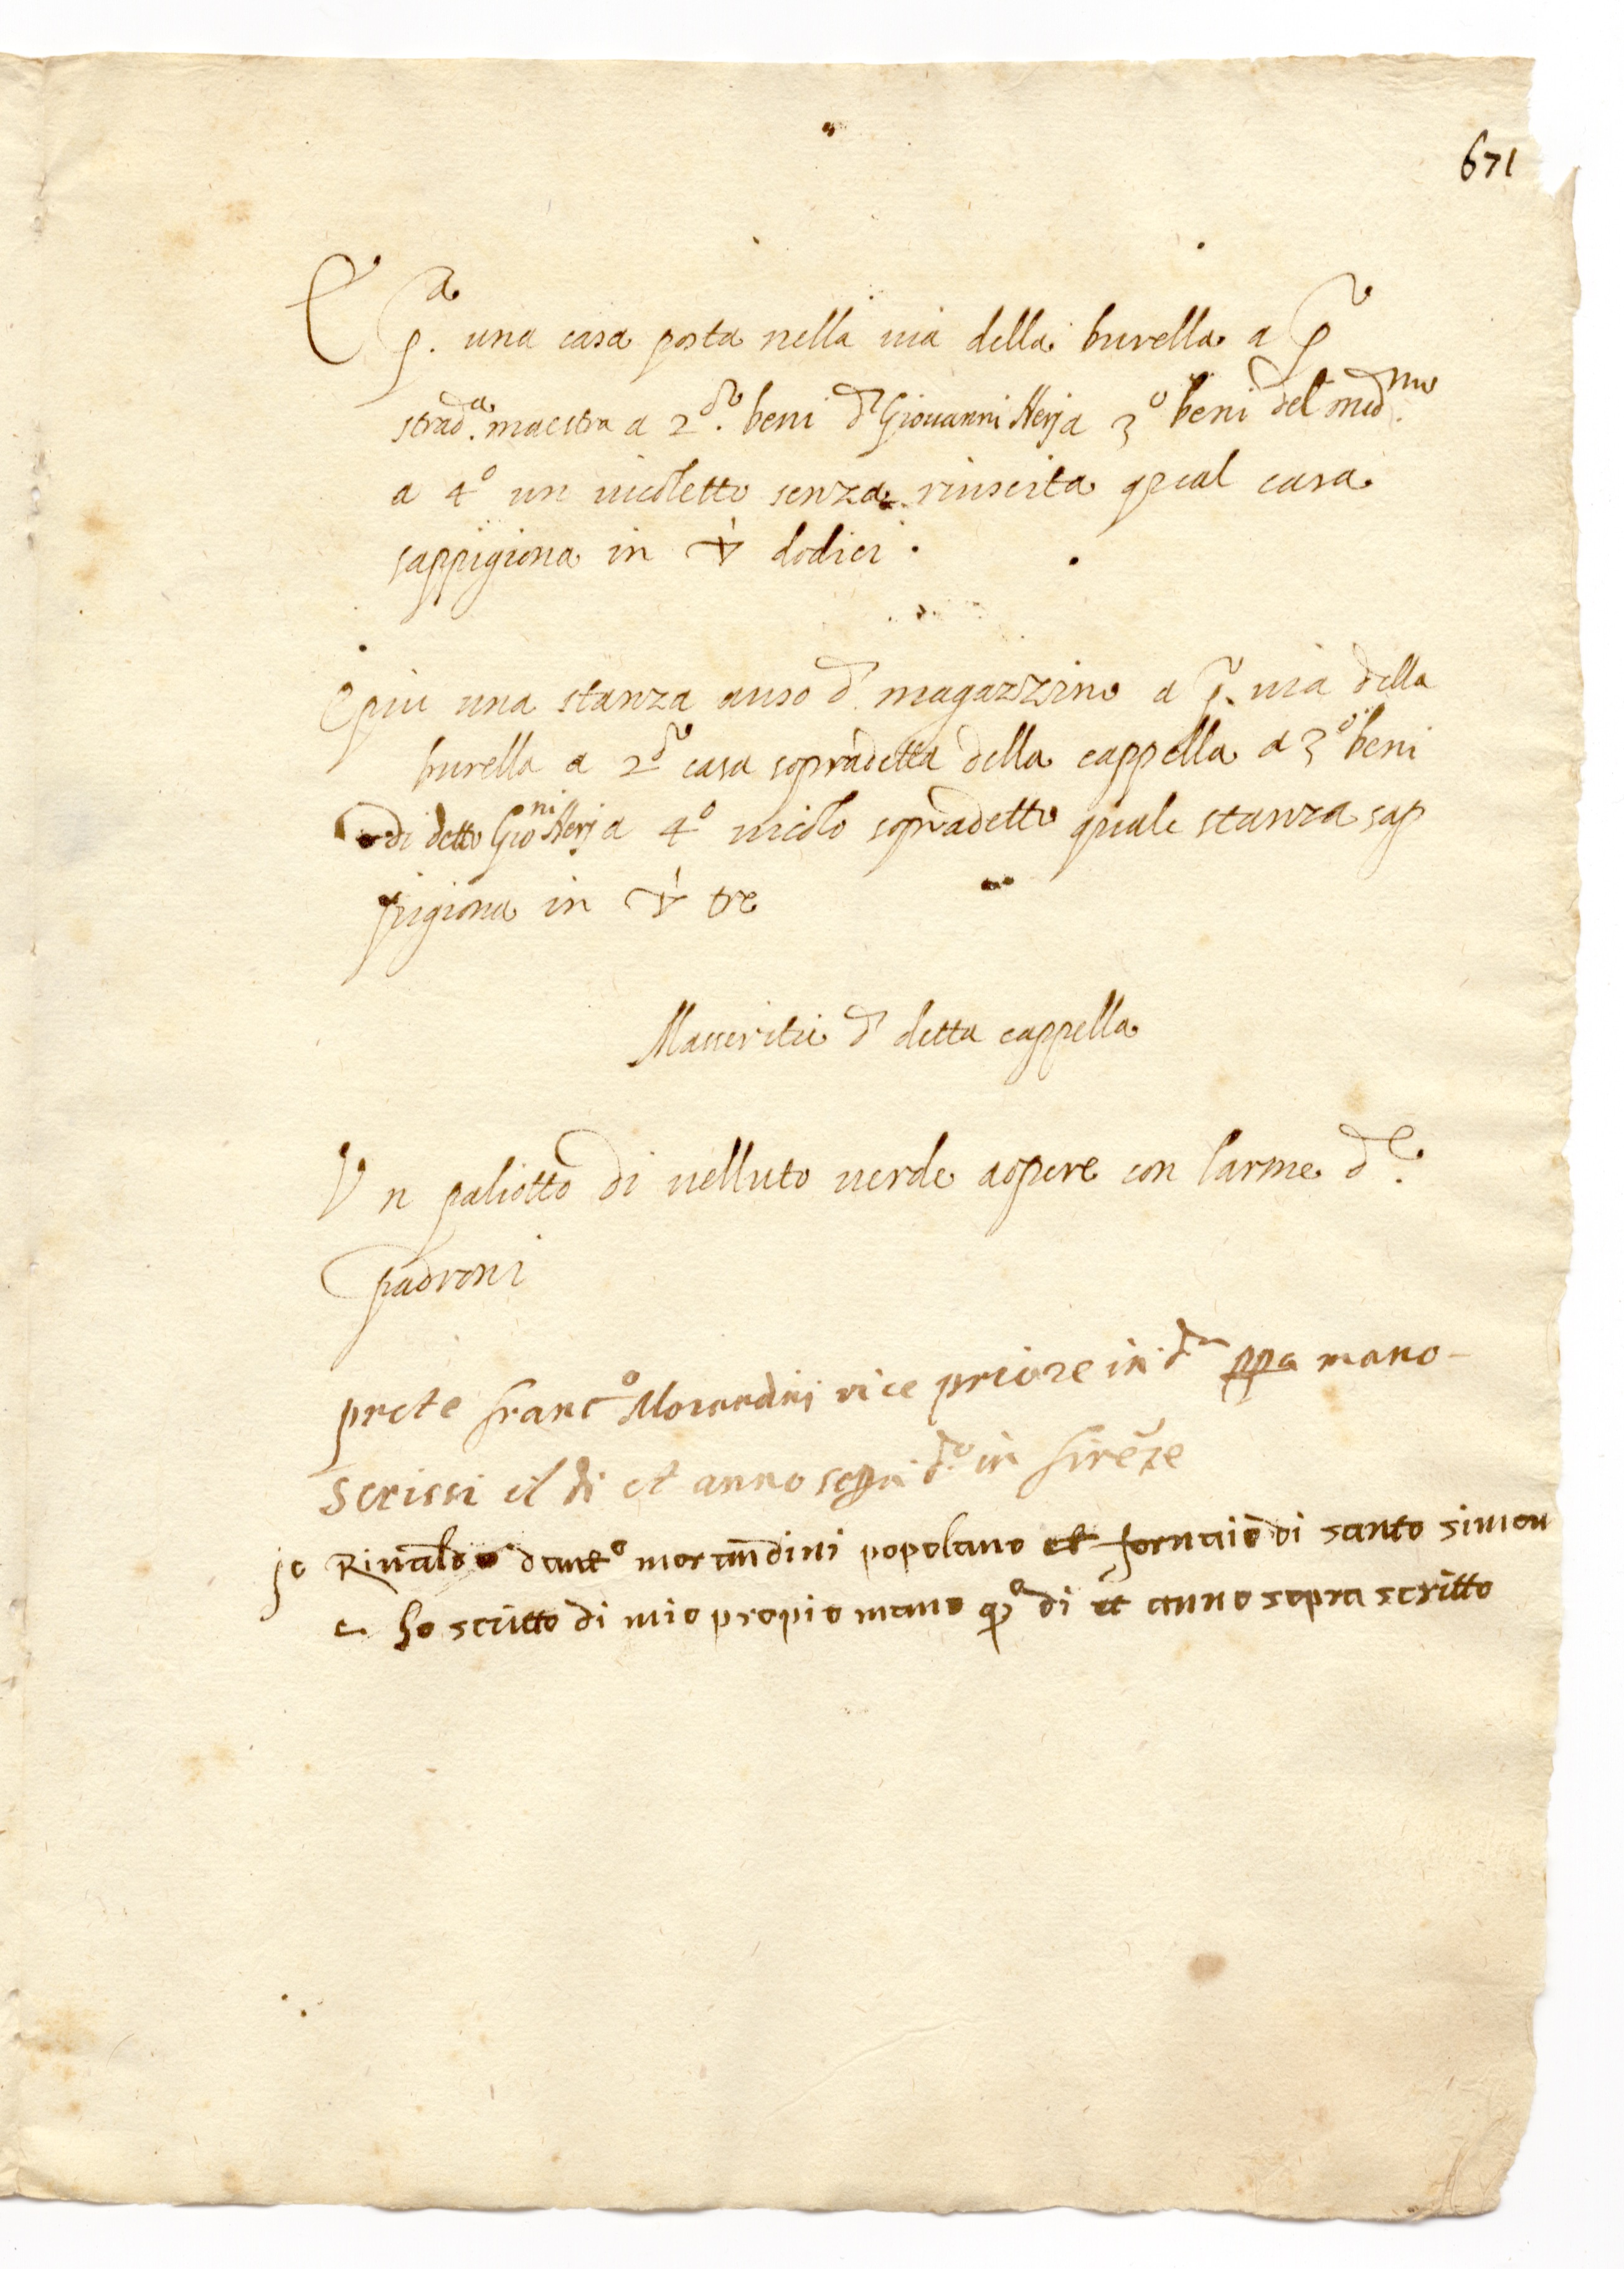 671
E pª. una casa posta nella via della burella a p°
stradª. maestra a 2do. beni di Giovanni Nerj a 3º beni del medmo.
a 4º un vicoletto senza riuscita qual casa
sappigiona in ▽ dodici.
E piu una stanza auso di magazzino a p°. via della
burella a 2do casa sopradetta della cappella a 3º beni
di detto Gioni Nerj a 4º vicolo sopradetto quale stanza sap
pigiona in ▽ tre
Masseritie di detta cappella
Un paliotto di velluto verde aopere con larme de.
padroni
prete Francº Morandini vice priore in do ppa mano
scrissi il di et anno sopra do in firēze
Jo Rinaldo dantº morandini popolano et fornaio di santo simon
e ho scritto di mio propio mano qº di et anno sopra scritto